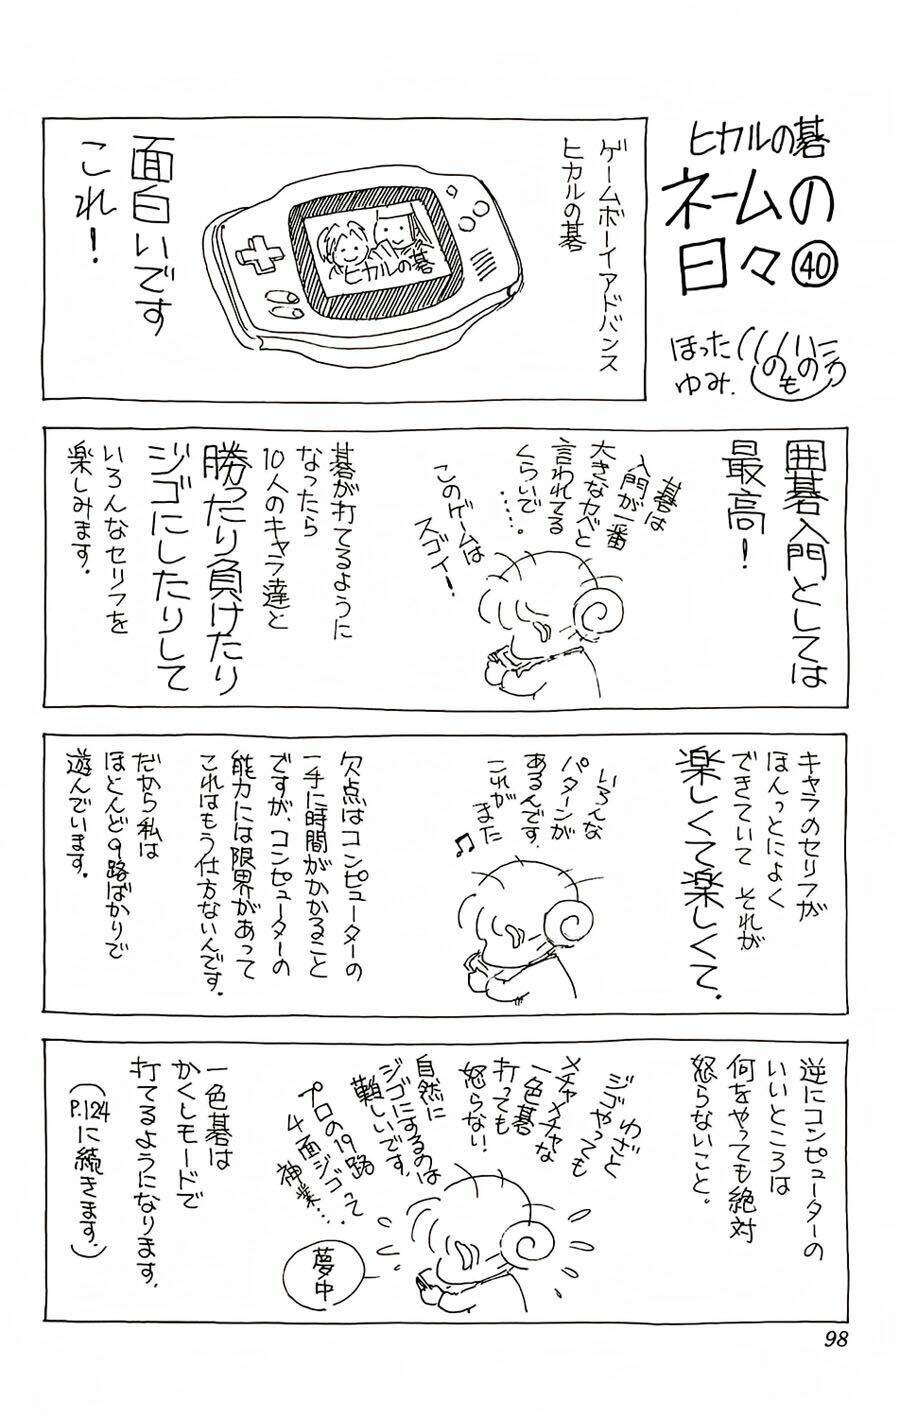 ヒカルの碁
ネームの
日々㊵
ほった
ゆみ.
ゲームボーイアドバンス
ヒカルの碁
ヒカルの碁
面白いです
これ!
囲碁入門としては
最高!
碁は
入門が一番
大きなカベと
言われてる
くらいで
.....
このゲームは
スゴイ!
碁が打てるように
なったら
10人のキャラ達と
勝ったり負けたり
ジゴにしたりして
いろんなセリフを
楽しみます.
キャラのセリフが
ほんっとによく
できていて それが
楽しくて楽しくて.
いろんな
パターンが
あるんです.
これが
また
♫
欠点はコンピューターの
一手に時間がかかること
ですが、コンピューターの
能力には限界があって
これはもう仕方ないんです.
だから私は
ほとんど9路ばかりで
遊んでいます.
逆にコンピューターの
いいところは
何をやっても絶対
怒らないこと。
わざと
ジゴやっても
メチャメチャな
一色碁
打っても
怒らない!
自然に
ジゴにするのは
難しいです.
プロの19路
4面ジゴって
神業....
夢中
一色碁は
かくしモードで
打てるようになります.
(P.124に続きます.)
98